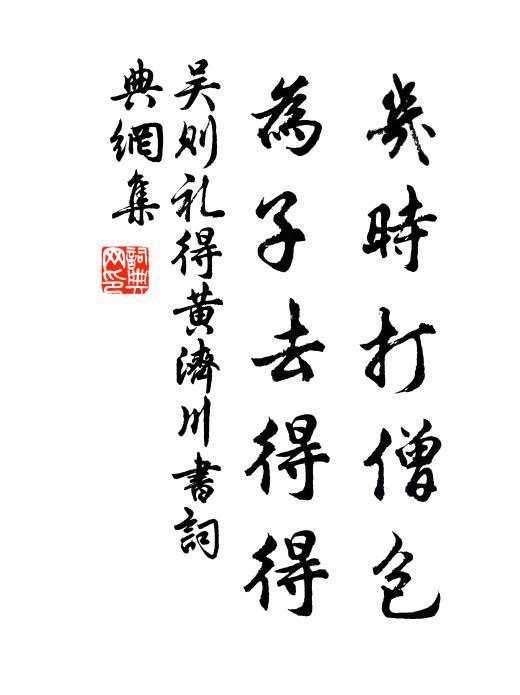 幾時打僧包
為子去得得
吳則礼得黃濟川書詞
典網集
詞典
网印